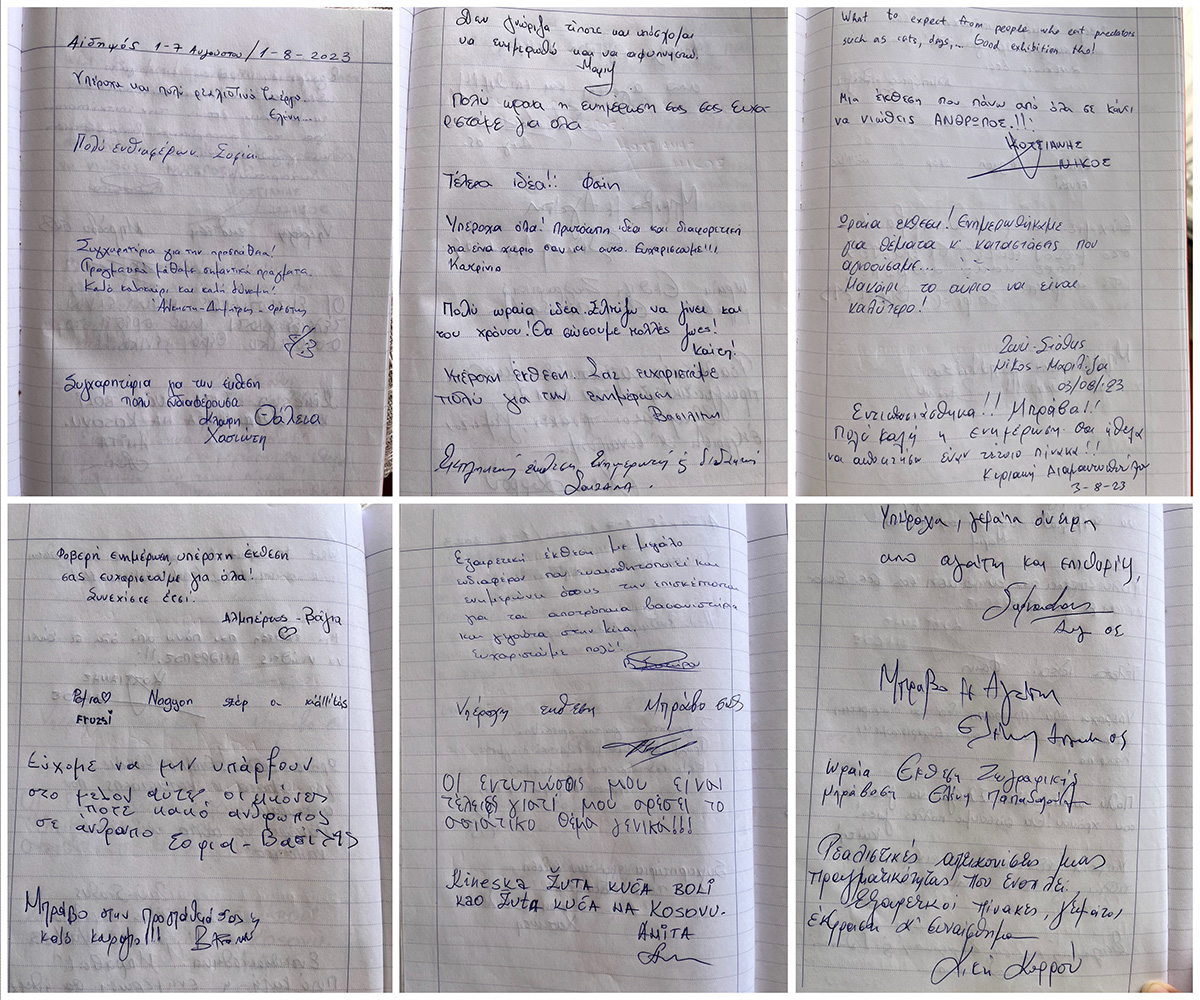 Αιδηψός 1-7 Αυγούστου / 1-8-2023
Υπέροχα και πολύ ρεαλιστικά τα έργα.
Ελένη...
Πολύ ενδιαφέρων. Σοφία
Συγχαρητήρια για την προσπάθεια!
Πραγματικά μάθαμε σημαντικά πράγματα.
Καλό καλοκαίρι και καλή δύναμη!
Δημήτρης - Ορέστης
Συγχαρητήρια για την έκθεση
πολύ ενδιαφέρουσα
Κλαίρη Θάλεια
Χασιώτη
Δεν γνώριζα τίποτε και υπόσχομαι
να ενημερωθώ και να αφυπνιστώ.
Μαρία
Πολύ ωραία η ενημέρωση σας σας ευχα-
ριστάμε για όλα
Τέλεια ιδέα!! Φαίη
Υπέροχα όλα! Πρωτότυπη ιδέα και διαφορετική
για ένα χωριό σαν κι αυτό. Ευχαριστούμε!!!
Κατερίνα
Πολύ ωραία ιδέα. Ελπίζω να γίνει και
του χρόνου! Θα σώσουμε πολλές ζωές!
Καίτη!
Υπέροχη έκθεση. Σας ευχαριστάμε
πολύ για την ενημέρωση
Βασιλική
Εκπληκτική έκθεση. Ενημερωτική & διδακτική
What to expect from people who eat predators
such as cats, dogs,... Good exhibition tho!
Μια έκθεση που πάνω από όλα σε κάνει
να νιώθεις ΑΝΘΡΩΠΟΣ!!!
ΚΟΤΣΙΑΝΗΣ
ΝΙΚΟΣ
Ωραία έκθεση! Ενημερωθήκαμε
για θέματα κ' καταστάσεις που
αγνοούσαμε...
Μακάρι το αύριο να είναι
καλύτερο!
Ζωή - Στάθης
Νίκος - Μαριλίζα
03/08/23
Εντυπωσιάστηκα!! Μπράβο!!
Πολύ καλή η ενημέρωση θα ήθελα
να αποκτήσω έναν τέτοιο πίνακα!!
Κυριακή Διαμαντοπούλου
3-8-23
Φοβερή ενημέρωση, υπέροχη έκθεση
σας ευχαριστούμε για όλα!
Συνεχίστε έτσι.
Αλμπέρτος - Βάγια
Petra Nagyon szép a kiállítás
Fruzsi
Εύχομε να μην υπάρξουν
στο μέλον αυτές οι εικόνες
ποτέ κακό άνθρωπος
σε άνθρωπο Σοφία - Βασίλης
Μπράβο στην προσπάθειά σας η
καλό κουράγιο!!!
Εξαιρετική έκθεση με μεγάλο
ενδιαφέρον που ευαισθητοποιεί και
ενημερώνει όσους την επισκέπτονται
για τα αποτρόπαια βασανιστήρια
και γεγονότα στην Κίνα.
Ευχαριστούμε πολύ!
Υπέροχη έκθεση Μπράβο σας
ΟΙ εντυπώσεις μου είναι
τέλειες γιατί μου αρέσει το
ασιατικό θέμα γενικά!!!
Kineska ŽUTA KUĆA BOLI
KAO ŽUTA KUĆA NA KOSOVU.
ANITA
Υπέροχα, γεμάτα όνειρα
από αγάπη και επιθυμίες,
Μπράβο με Αγάπη
Ελένη
Ωραία Έκθεση Ζωγραφικής
Μπράβο Ελένη
Ρεαλιστικές απεικονίσεις μιας
πραγματικότητας που
Εξαιρετικοί πίνακες, γεμάτοι
έκφραση & συναίσθημα
Κική